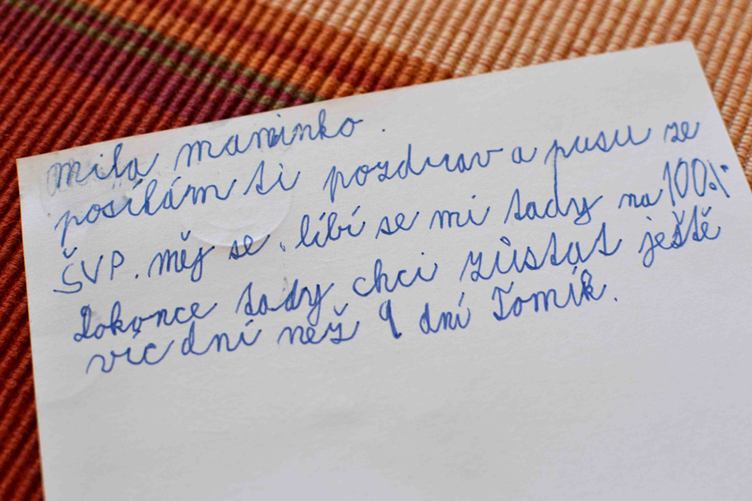 mila maminko.
posílám ti pozdrav a pusu ze
ŠVP. měj se. líbí se mi tady na 100%.
Dokonce tady chci zůstat ještě
víc dní než 9 dní Tomík.